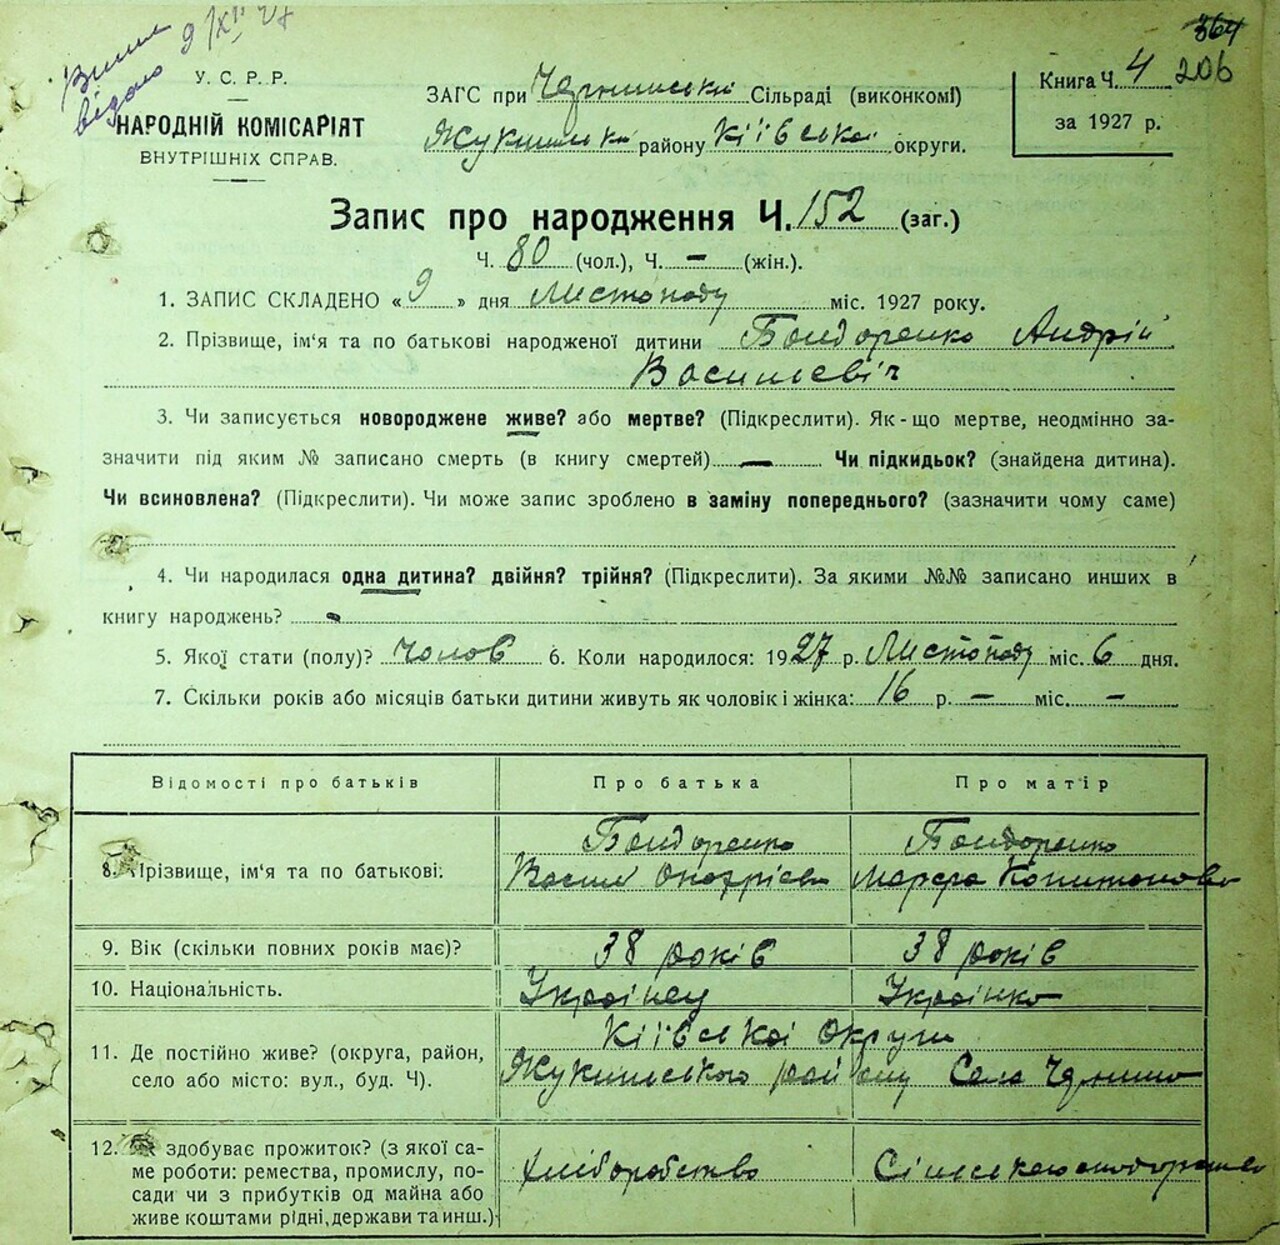 Випис
видано 9/XI 27
364
206
У. С. Р. Р.
НАРОДНІЙ КОМІСАРІЯТ
ВНУТРІШНІХ СПРАВ.
ЗАГС при Сільраді (виконкомі)
району Київської округи.
Книга Ч. 4
за 1927 р.
Запис про народження Ч. 152 (заг.)
Ч. 80 (чол.), Ч. – (жін.).
1. ЗАПИС СКЛАДЕНО « 9 » дня Листопаду міс. 1927 року.
2. Прізвище, ім'я та по батькові народженої дитини Бондоренко Андрій
Восильевіч
3. Чи записується новороджене живе? або мертве? (Підкреслити). Як-що мертве, неодмінно за-
значити під яким № записано смерть (в книгу смертей) — Чи підкидьок? (знайдена дитина).
Чи всиновлена? (Підкреслити). Чи може запис зроблено в заміну попереднього? (зазначити чому саме)
4. Чи народилася одна дитина? двійня? трійня? (Підкреслити). За якими №№ записано инших в
книгу народжень? -
5. Якої стати (полу)? Чолов 6. Коли народилося: 1927 р. Листопаду міс. 6 дня.
7. Скільки років або місяців батьки дитини живуть як чоловік і жінка: 16 р. – міс. –
Відомості про батьків Про батька Про матір
8. Прізвище, ім'я та по батькові: Бондоренко Бондоренко
Восил Онофрієв Марфа Копитонова
9. Вік (скільки повних років має)? 38 років 38 років
10. Національність. Українец Українко
11. Де постійно живе? (округа, район, Київської Округи
село або місто: вул., буд. Ч). району Села
12. здобуває прожиток? (з якої са-
ме роботи: ремества, промислу, по- хліборобство
сади чи з прибутків од майна або
живе коштами рідні, держави та инш.)